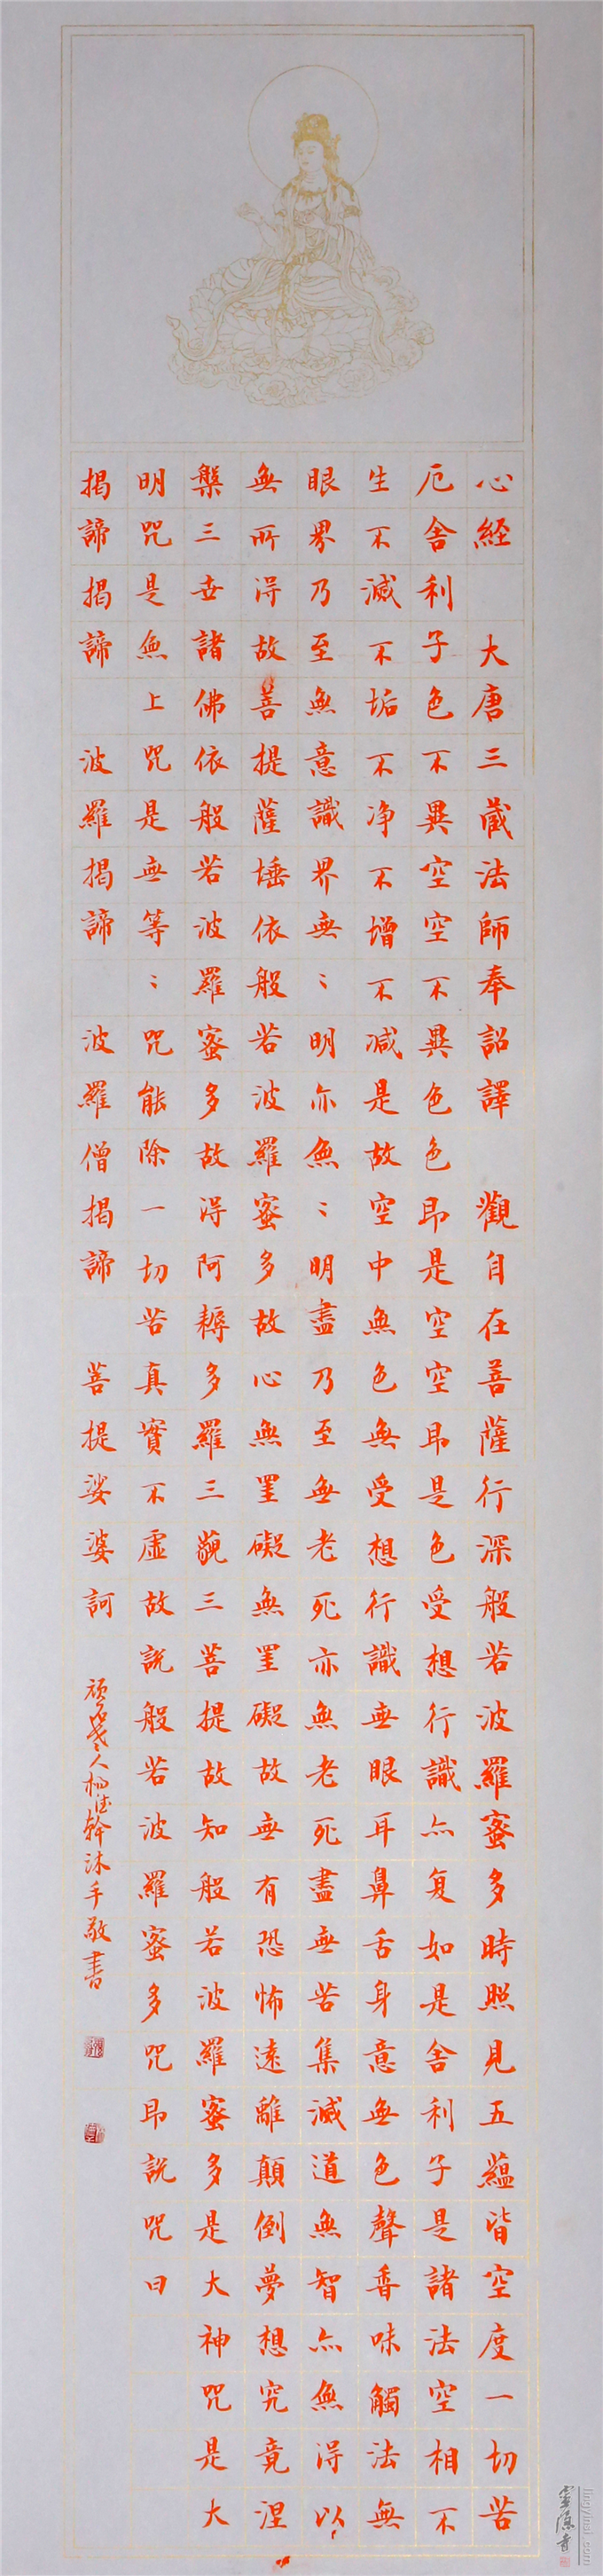 心經 大唐三藏法師奉詔譯 觀自在菩薩行深般若波羅蜜多時照見五蘊皆空度一切苦
厄舍利子色不異空空不異色色即是空空即是色受想行識亦复如是舍利子是諸法空相不
生不滅不垢不净不增不减是故空中無色無受想行識無眼耳鼻舌身意無色聲香味觸法無
眼界乃至無意識界無〻明亦無〻明盡乃至無老死亦無老死盡無苦集滅道無智亦無得以
無所得故菩提薩埵依般若波羅蜜多故心無罣礙無罣礙故無有恐怖遠離顛倒夢想究竟涅
槃三世諸佛依般若波羅蜜多故得阿耨多羅三藐三菩提故知般若波羅蜜多是大神咒是大
明咒是無上咒是無等〻咒能除一切苦真實不虛故說般若波羅蜜多咒即說咒曰
揭諦揭諦 波羅揭諦 波羅僧揭諦 菩提娑婆訶
人楊德幹沐手敬書
靈隱寺
lingyinsi.com